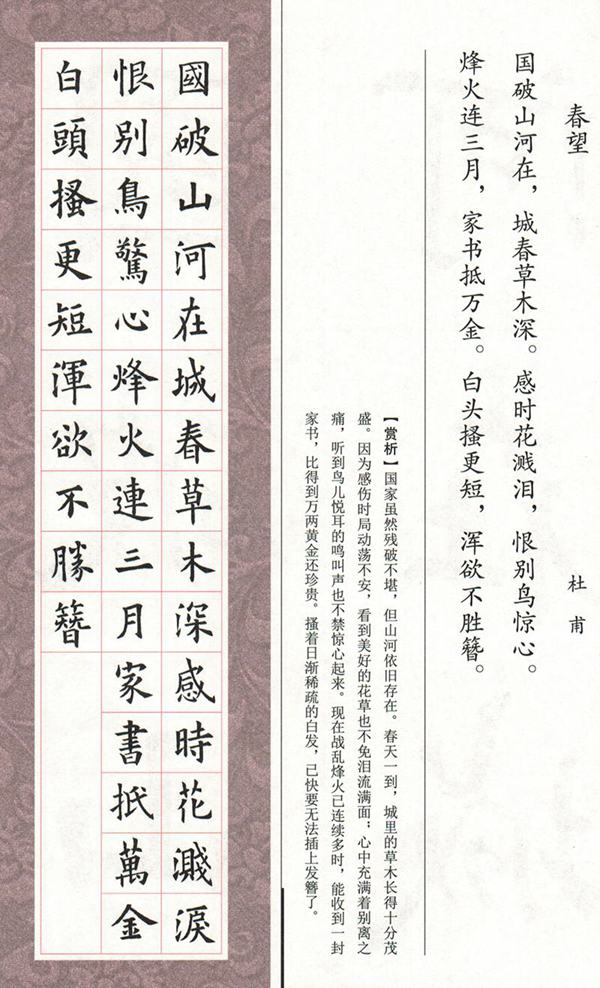 春望
杜甫
国破山河在，城春草木深。感时花溅泪，恨别鸟惊心。
烽火连三月，家书抵万金。白头搔更短，浑欲不胜簪。
【赏析】国家虽然残破不堪，但山河依旧存在。春天一到，城里的草木长得十分茂
盛。因为感伤时局动荡不安，看到美好的花草也不免泪流满面；心中充满着别离之
痛，听到鸟儿悦耳的鸣叫声也不禁惊心起来。现在战乱烽火已连续多时，能收到一封
家书，比得到万两黄金还珍贵。搔着日渐稀疏的白发，已快要无法插上发簪了。
國破山河在城春草木深感時花濺淚
恨别鳥驚心烽火連三月家書抵萬金
白頭搔更短渾欲不勝簪